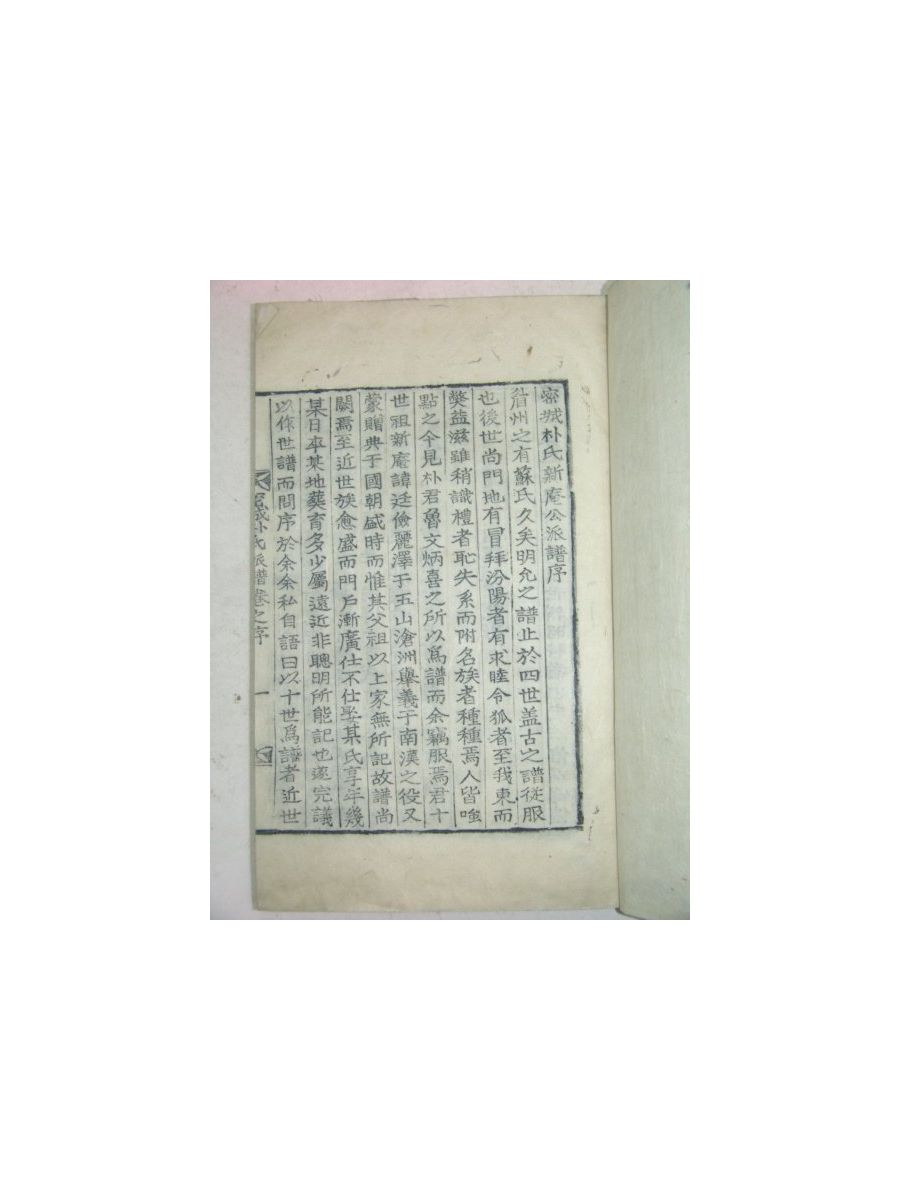 密城朴氏新庵公派譜序
眉州之有蘇氏久矣明允之譜止於四世盖古之譜從服
也後世尚門地有冒拜汾陽者有求睦令狐者至我東而
弊益滋雖稍識禮者恥失系而附名族者種種焉人皆嗤
點之今見朴君魯文炳喜之所以爲譜而余竊服焉君十
世祖新庵諱廷儉麗澤于玉山滄洲擧義于南漢之役又
蒙贈典于國朝盛時而惟其父祖以上家無所記故譜尚
闕焉至近世族愈盛而門戶漸廣仕不仕娶某氏享年幾
某日卒某地葬育多少屬遠近非聰明所能記也遂完議
以作世譜而問序於余余私自語曰以十世爲譜者近世
密城朴氏派譜卷之序 一